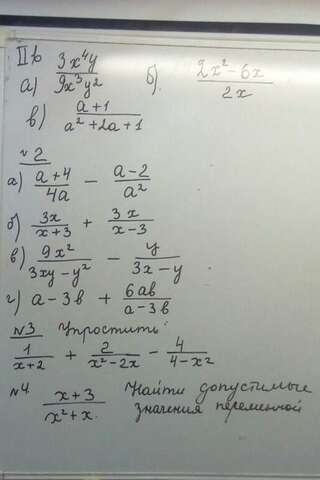 IIв
а) 3x⁴y / 9x³y² б) 2x² - 6x / 2x
в) a+1 / a² + 2a + 1
№2
а) a+4 / 4a - a-2 / a²
б) 3x / x+3 + 3x / x-3
в) 9x² / 3xy - y² - y / 3x - y
г) a - 3b + 6ab / a - 3b
№3 Упростить:
1 / x+2 + 2 / x² - 2x - 4 / 4 - x²
№4 x+3 / x² + x. Найти допустимые
значения переменной